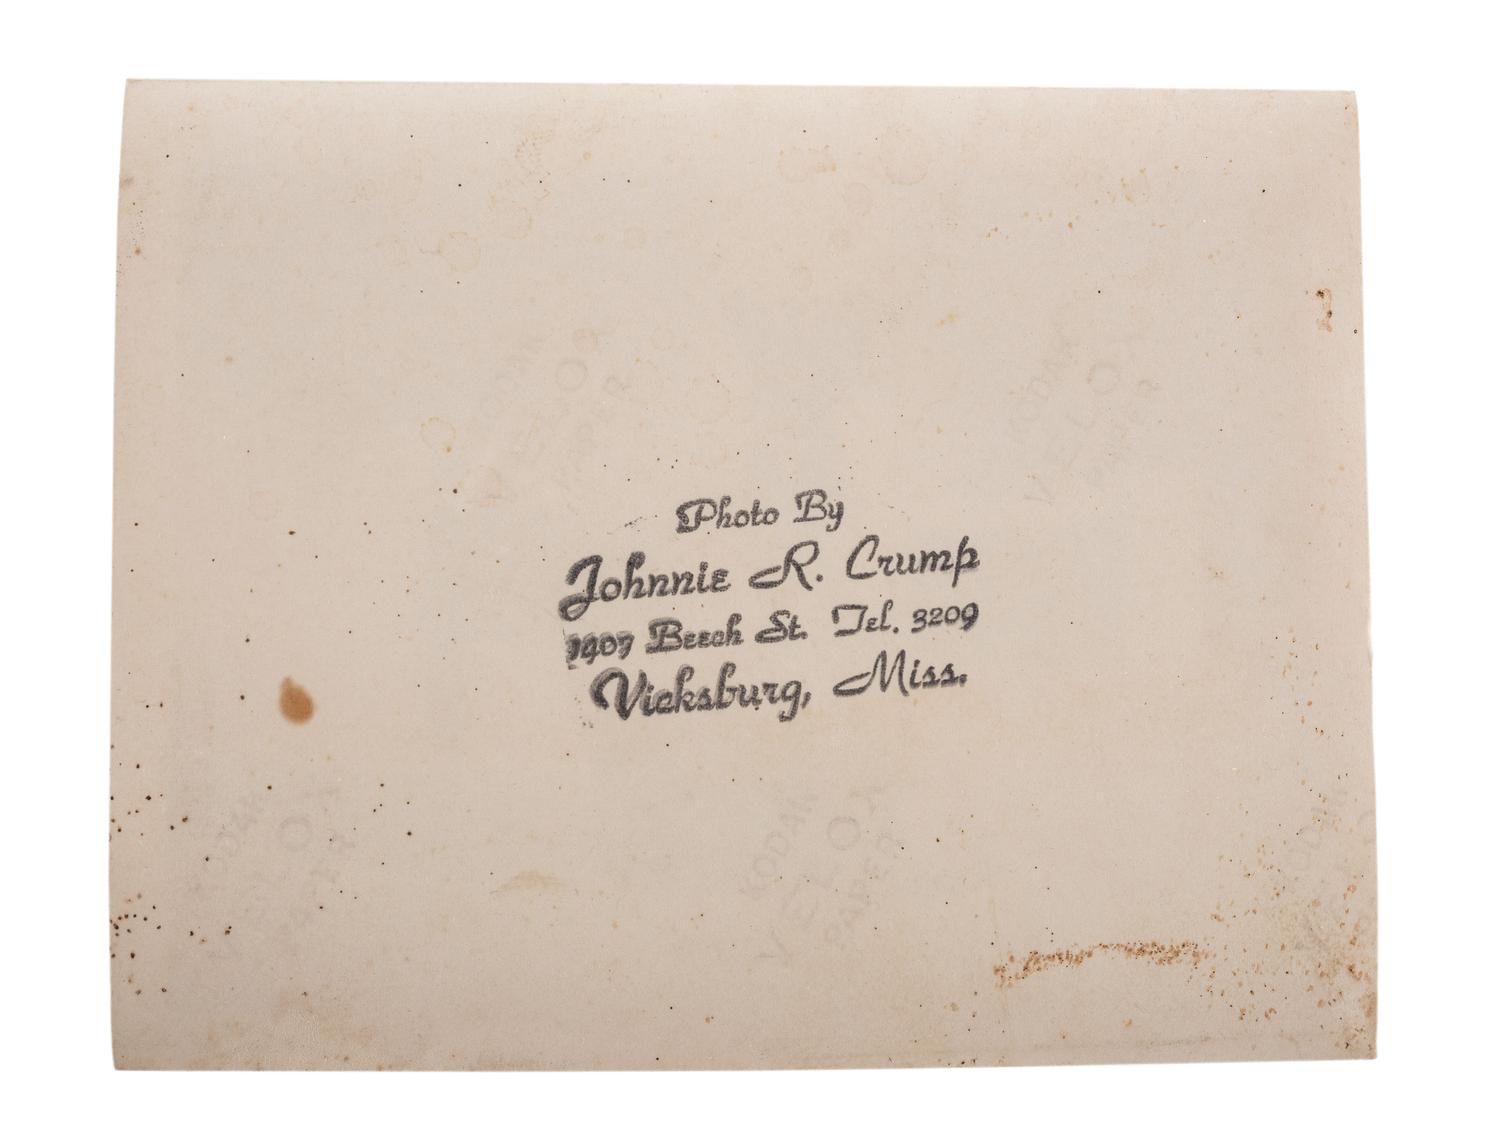 Photo By
Johnnie R. Crump
1407 Beech St. Tel. 3209
Vicksburg, Miss.
KODAK
VELOX
PAPER
KODAK
VELOX
PAPER
KODAK
VELOX
PAPER
KODAK
VELOX
PAPER
KODAK